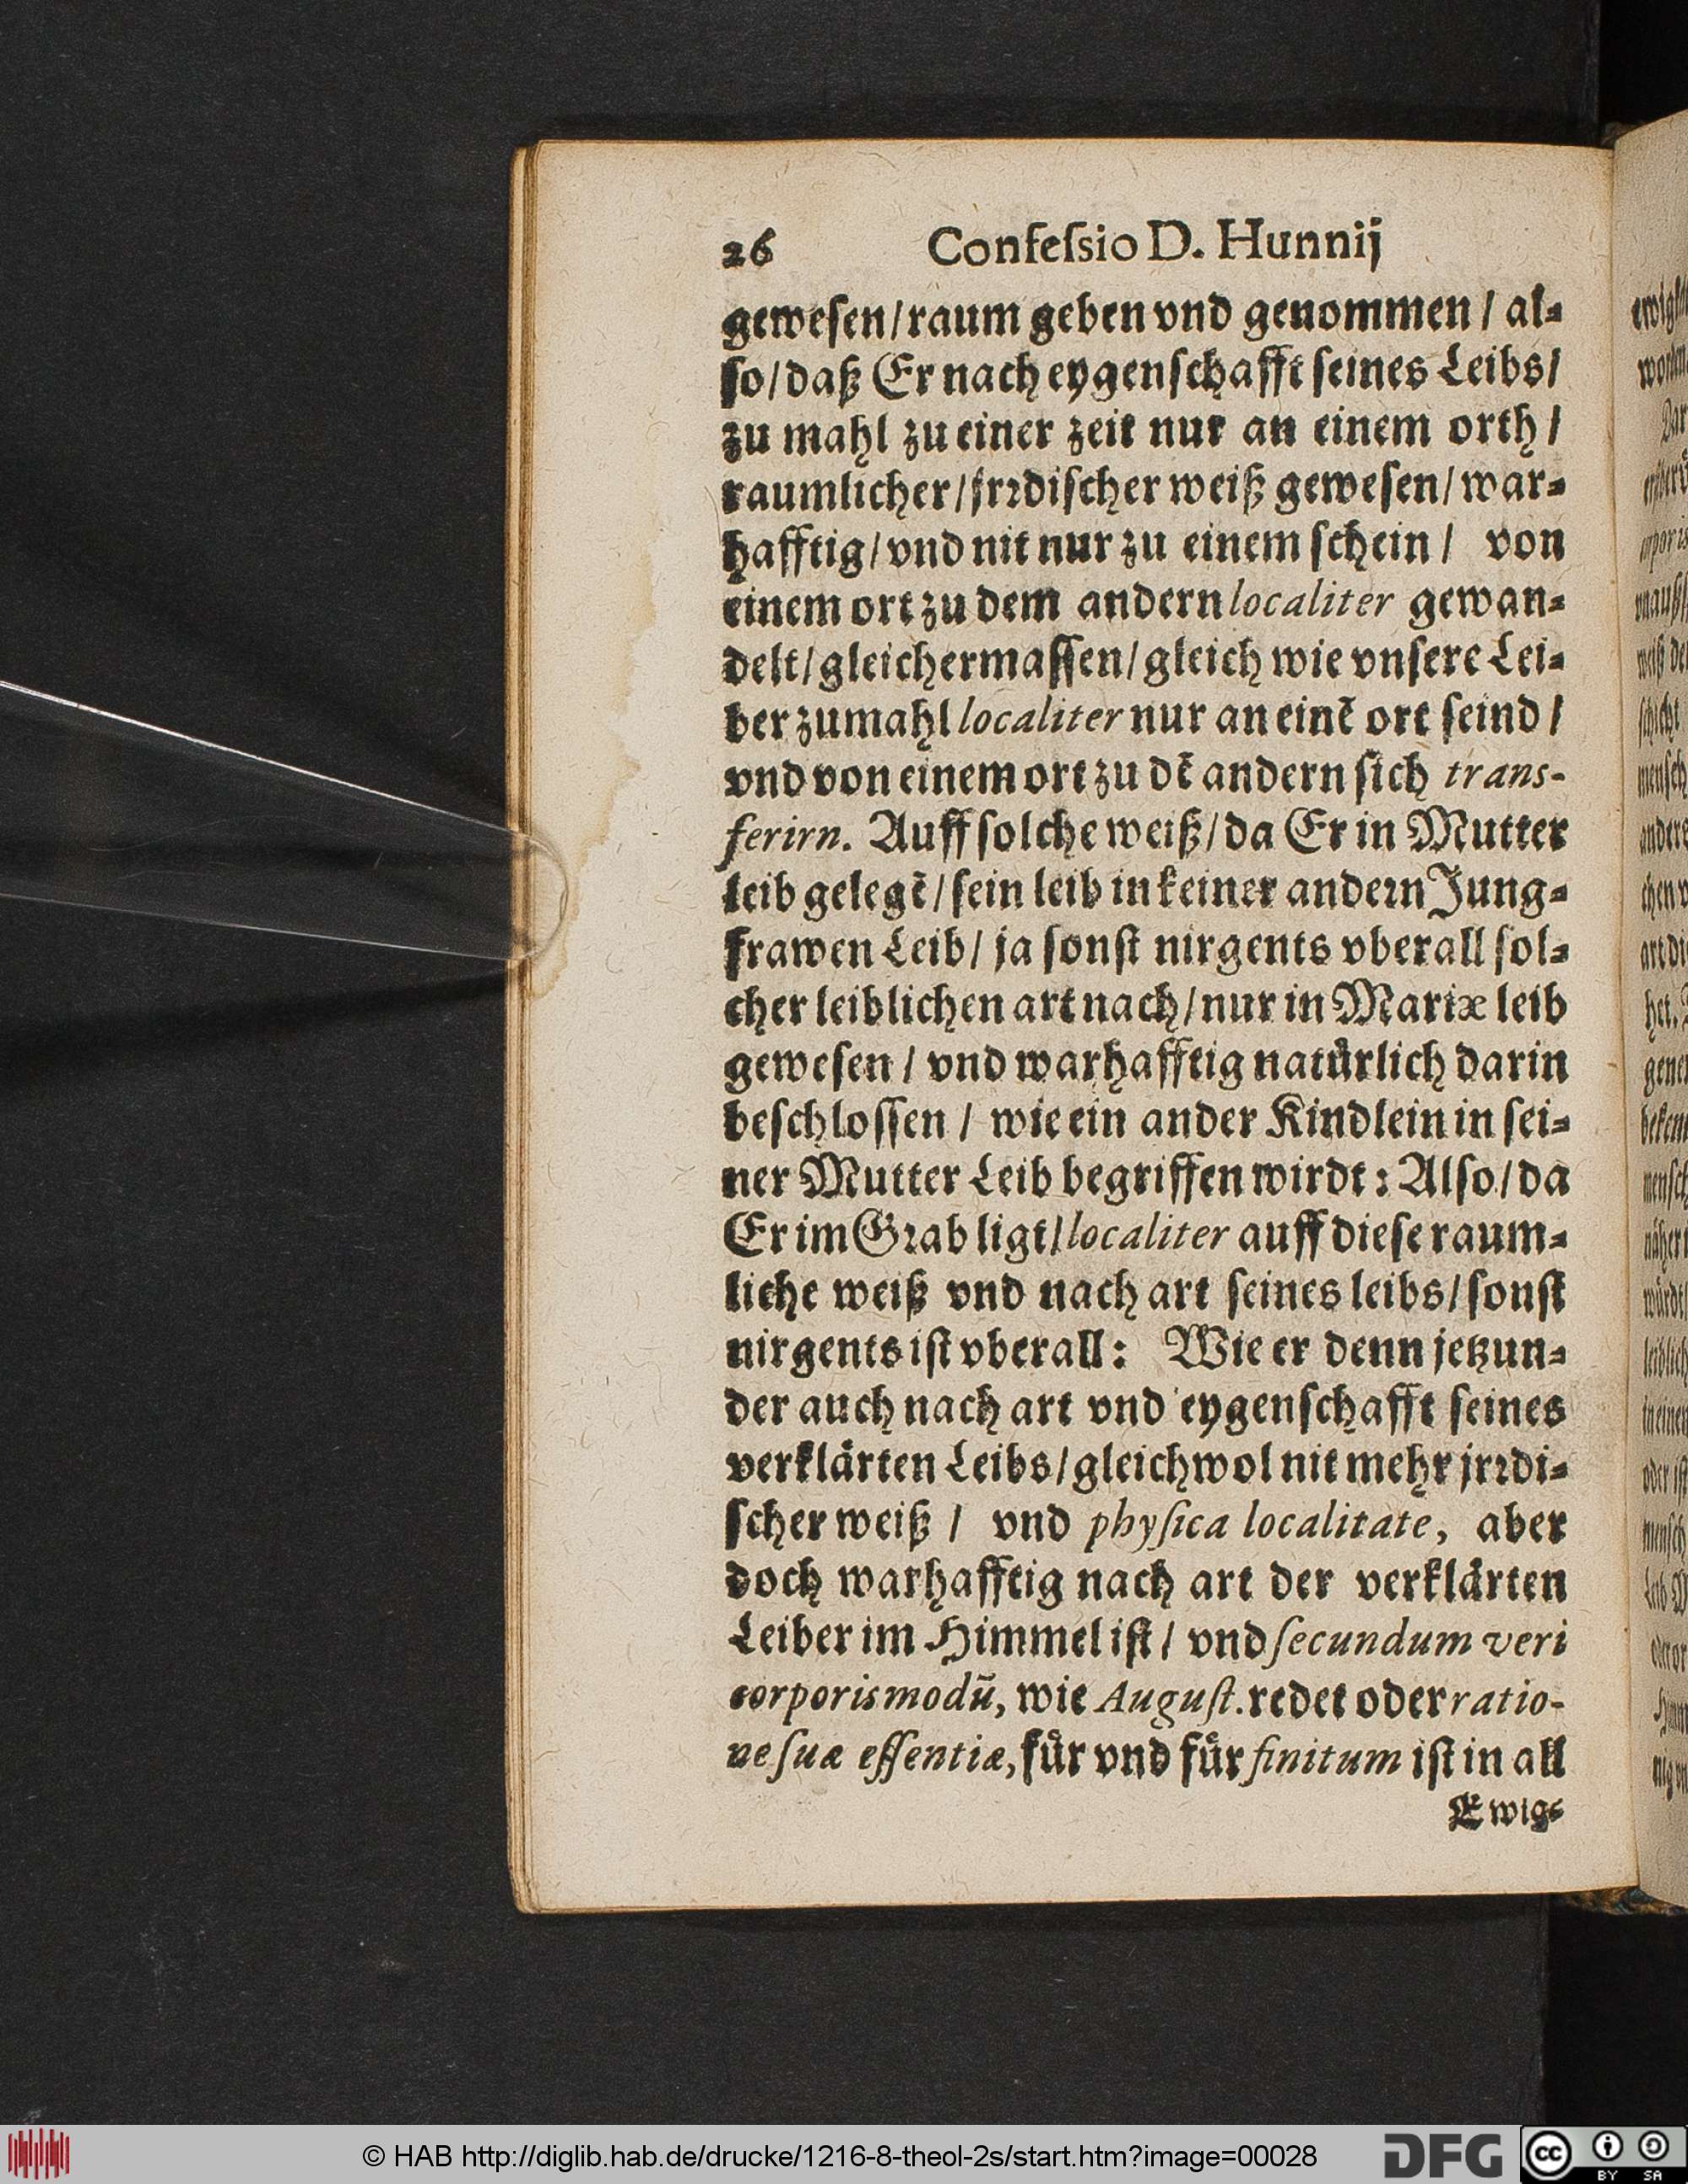 26 Confeſsio D. Hunnij
gewesen/raum geben vnd genommen / al⸗
ſo/daß Er nach eygenſchafft ſeines Leibs/
zu mahl zu einer zeit nur an einem orth /
raumlicher/jrꝛdiſcher weiß geweſen/war⸗
hafftig/vnd nit nur zu einem ſchein / von
einem ort zu dem andern localiter gewan⸗
delt/gleichermaſſen/gleich wie vnſere Lei⸗
ber zumahl localiter nur an einẽ ort ſeind /
vnd von einem ort zu dẽ andern ſich trans-
ferirn. Auff ſolche weiß/da Er in Mutter
leib gelegẽ/ſein leib in keiner andeꝛn Jung⸗
frawen Leib/ ja ſonſt nirgents vberall ſol⸗
cher leiblichen art nach/nur in Mariæ leib
geweſen / vnd warhafftig natuͤrlich darin
beſchloſſen / wie ein ander Kindlein in ſei⸗
ner Mutter Leib begriffen wirdt: Alſo/da
Er im Gꝛab ligt/localiter auff dieſe raum⸗
liche weiß vnd nach art ſeines leibs/ſonſt
nirgents iſt vberall: Wie er denn jetzun⸗
der auch nach art vnd eygenſchafft ſeines
verklaͤrten Leibs/gleichwol nit mehr jrꝛdi⸗
ſcher weiß / vnd phyſica localitate, aber
doch warhafftig nach art der verklaͤrten
Leiber im Himmel iſt / vnd ſecundum veri
corporis modũ, wie Auguſt. redet oder ratio-
ne ſuæ eſſentiæ, fuͤr vnd fuͤr finitum iſt in all
Ewig⸗
© HAB http://diglib.hab.de/drucke/1216-8-theol-2s/start.htm?image=00028
DFG
cc
BY SA